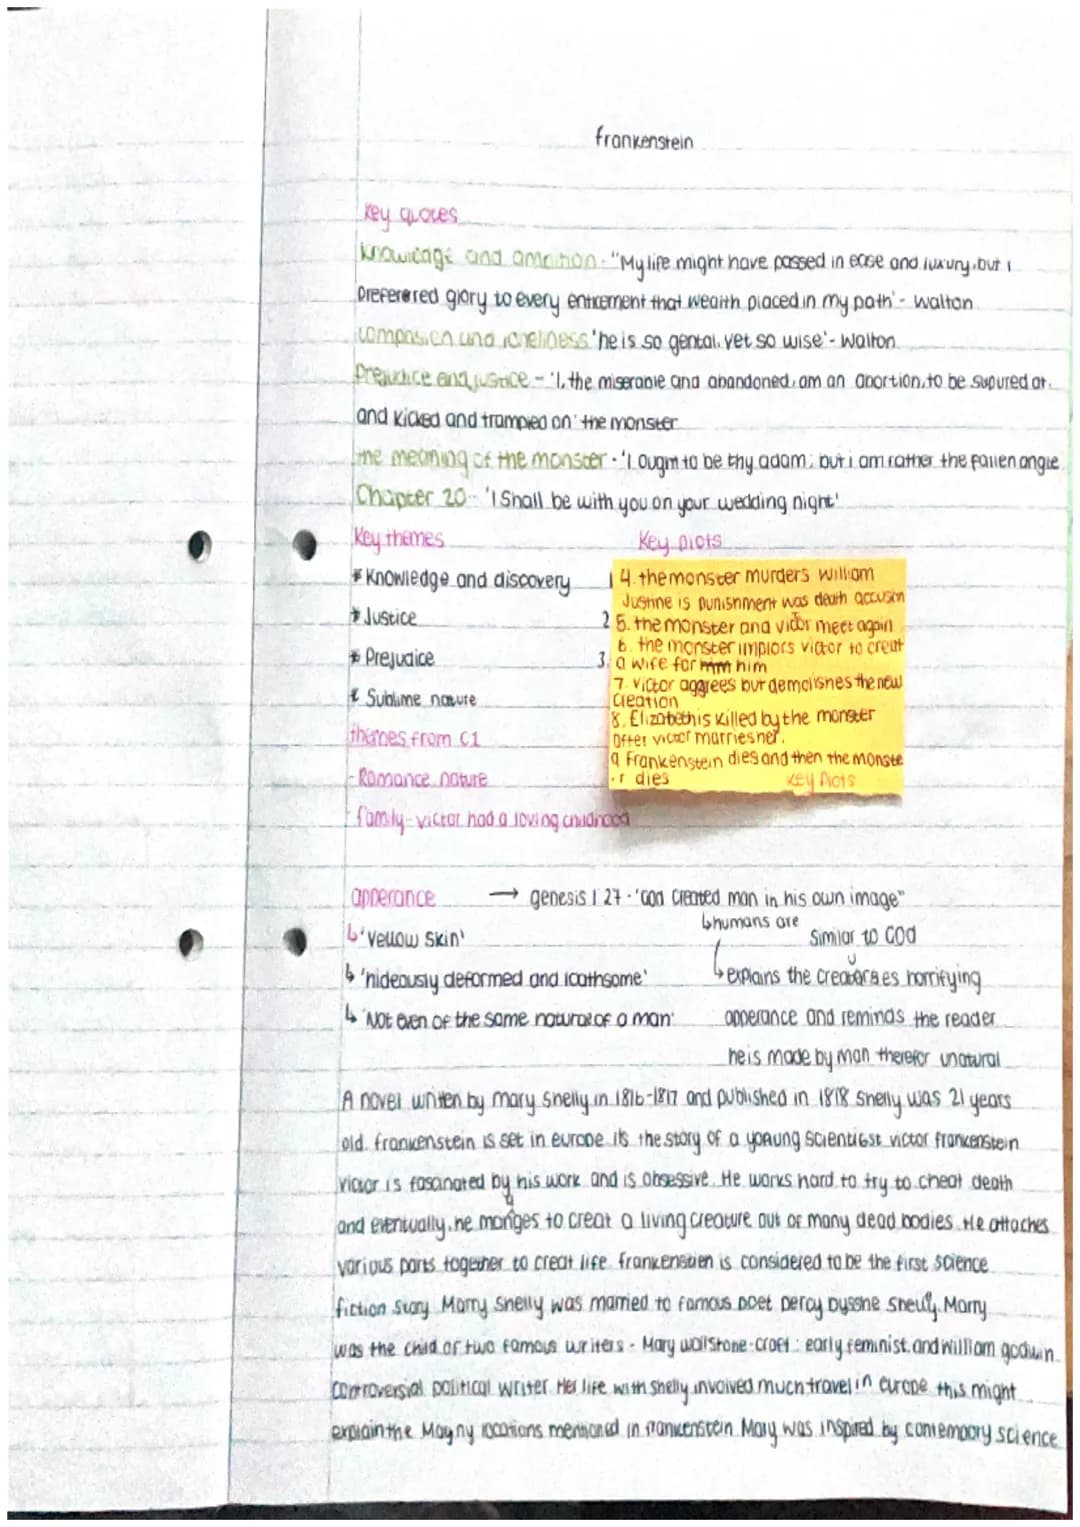 frankenstein
Key quotes
Knowledge and ambition - "My life might have passed in ease and luxury, but I
Preferered glory to every enticement that wealth placed in my path' - Walton
compasion and loneliness 'he is so gental, yet so wise' - Walton
Prejudice and justice - 'I, the miserable and abandoned, am an abortion, to be supured at.
and kicked and trampled on' the monster
The meaning of the monster - 'I ought to be thy adam; but i am rather the fallen angle
Chapter 20 - 'I Shall be with you on your wedding night'
Key themes
Key plots
* Knowledge and discovery
* Justice
* Prejudice
* Sublime nature
1
2
3.
4. the monster murders william
Justine is punishment was death accusin
5. the monster and victor meet again
6. the monster implors victor to creat
a wife for him
7. victor aggrees but demolishes the new
creation
8. Elizabeth is killed by the monster
after victor marries her.
9 Frankenstein dies and then the monste
r dies
key plots
themes from C1
- Romance nature
- family - victor had a loving childhood
apperance → genesis 1 27 - 'God created man in his own image"
↳ humans are
similar to GOD
↳ 'Yellow skin'
↳ 'hideously deformed and loathsome'
↳ explains the horrifying
↳ 'Not even of the same nature of a man'
apperance and reminds the reader
he is made by man therefor unatural
A novel written by mary shelly in 1816-1817 and published in 1818 shelly was 21 years
old. frankenstein is set in europe its the story of a young scientist victor frankenstein
victor is fasanated by his work and is obsessive. He works hard to try to cheat death
and eventually, he manges to creat a living creature out of many dead bodies. He attaches
various parts together to creat life. frankenstien is considered to be the first science
fiction story. Marry Shelly was married to famous poet percy bysshe shelly. Marry
was the child of two famous writers - Mary wollstone-croft: early feminist and william godwin
controversial political writer. Her life with shelly involved much travel in europe this might
explain the locations mentioned in frankenstein Mary was inspired by contempory science